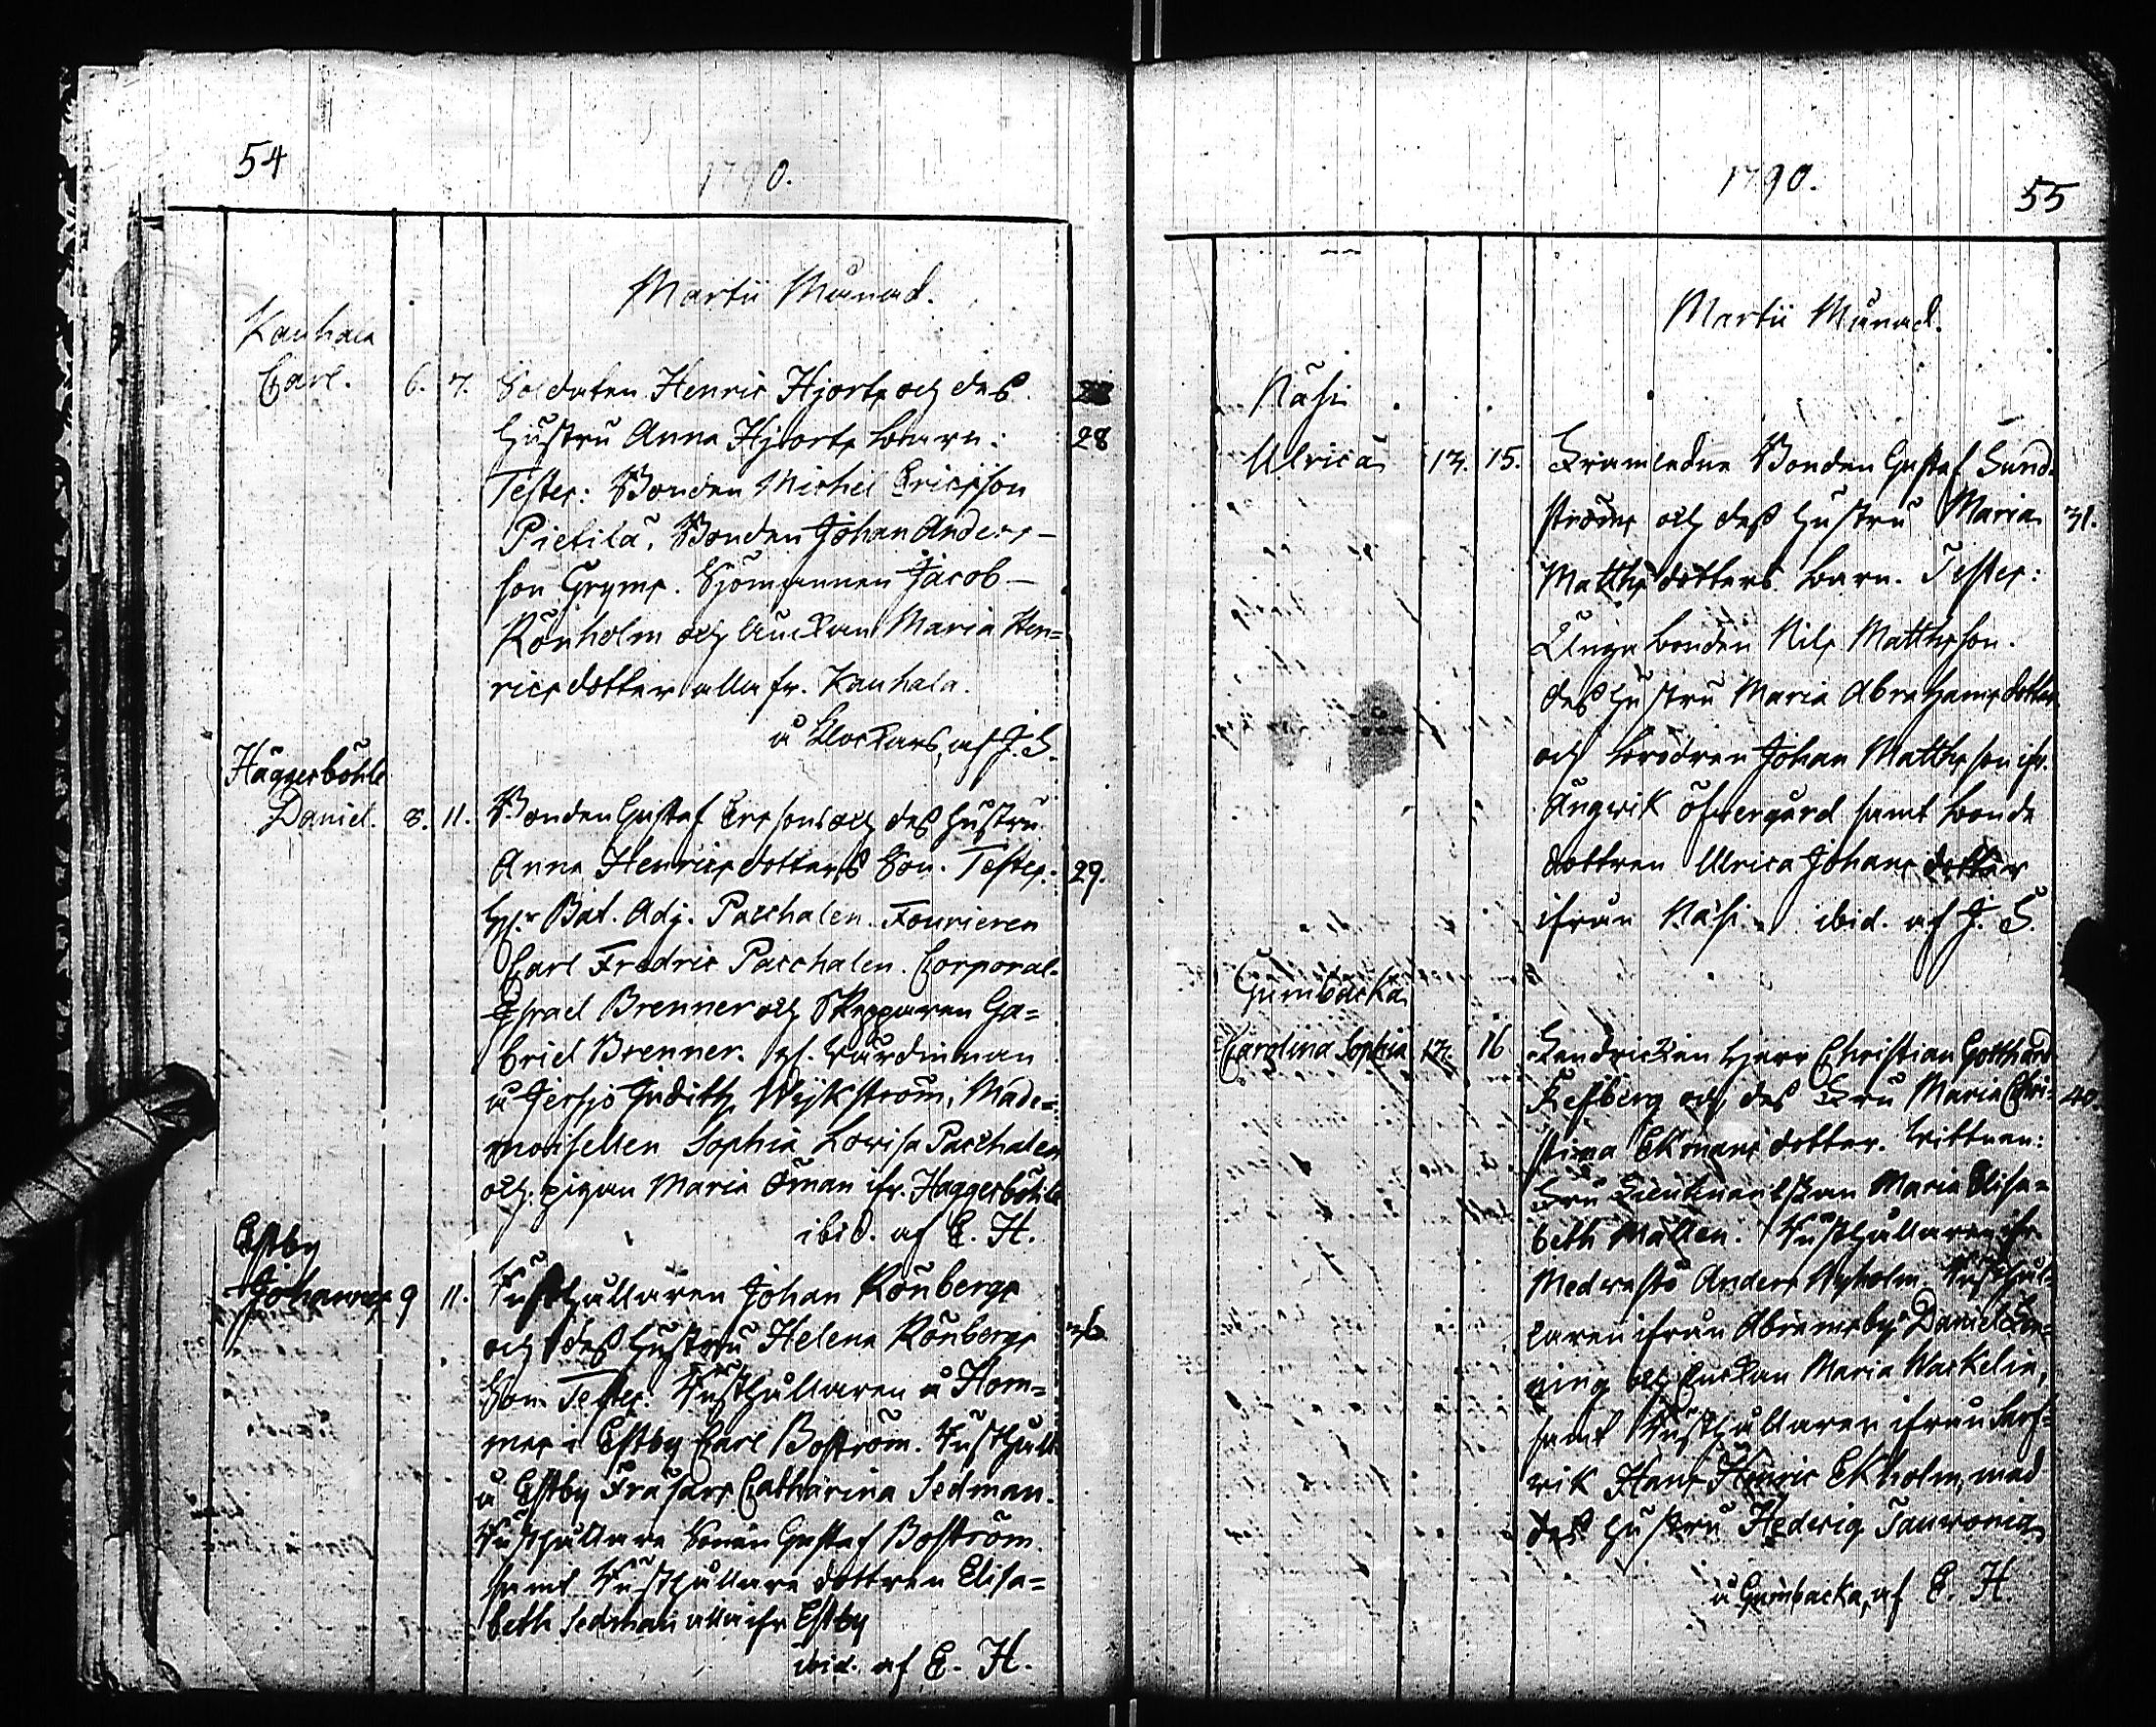 54
1790.
Martii Månad.
Kauhala
Carl. 6. 7. Soldaten Henric Hjorts och deß
hustru Anna Hjorts barn. 28
Testes: Bonden Michel Ericsson
Pietilä, Bonden Johan Anders-
son Gryms. Sjömannen Jacob
Rönholm och Enckan Maria Hen=
ricsdotter alla fr. Kauhala.
å Klockars, af J. S.
Häggesböhle
Daniel. 8. 11. Bonden Gustaf Erssons och deß hustru
Anna Henricsdotters Son. Testes: 29.
Hr Bat. Adj. Paschalen. Fourieren
Carl Fredric Paschalen. Corporal
Israel Brenner och Skepparen Ga=
briel Brenner.
å Jersjö Judith Wijkström, Made=
moisellen Sophia Lovisa Paschalen
och pigan Maria Öman ifr. Haggesböhle
ibid. af E. H.
Estby
Johannes 9 11. Rusthållaren Johan Rönbergs
och deß hustru Helena Rönbergs 30
Son. Testes: Rusthållaren å Hom=
mas i Estby Carl Boström. Rusthåll.
å Estby Frasars Catharina Sedman.
Rusthållare Sonen Gustaf Boström
samt Rusthållare dottren Elisa=
beth Sedman alla ifr Estby
ibid. af E. H.
1790.
55
Martii Månad.
Näse
Ulrica 13. 15. Framledne Bonden Gustaf Sund=
ströms och deß hustru Maria 31.
Matthsdotters barn. Testes:
Unga bonden Nils Matthsson.
deß hustru Maria Abrahamsdotter
och brodren Johan Matthsson ifr.
Ångvik Öfvergård samt bonde
dottren Ulrica Johansdotter
ifrån Näse. ibid. af J. S.
Gumbacka
Carolina Sophia 13. 16 Herr Christian Gotthard
och deß Fru Maria Chri= 40.
stina Ekmans dotter. Wittnen:
Fru Lieutnantskan Maria Elisa=
beth Mallén. Rusthållaren ifr
Medvastö Anders Nyholm. Rusthål=
laren ifrån Abramsby Daniel
och Enckan Maria Wackelin,
samt Rusthållaren ifrån Sarf=
vik Hans Henric Ekholm, med
deß hustru Hedvig
å Gumbacka, af E. H.